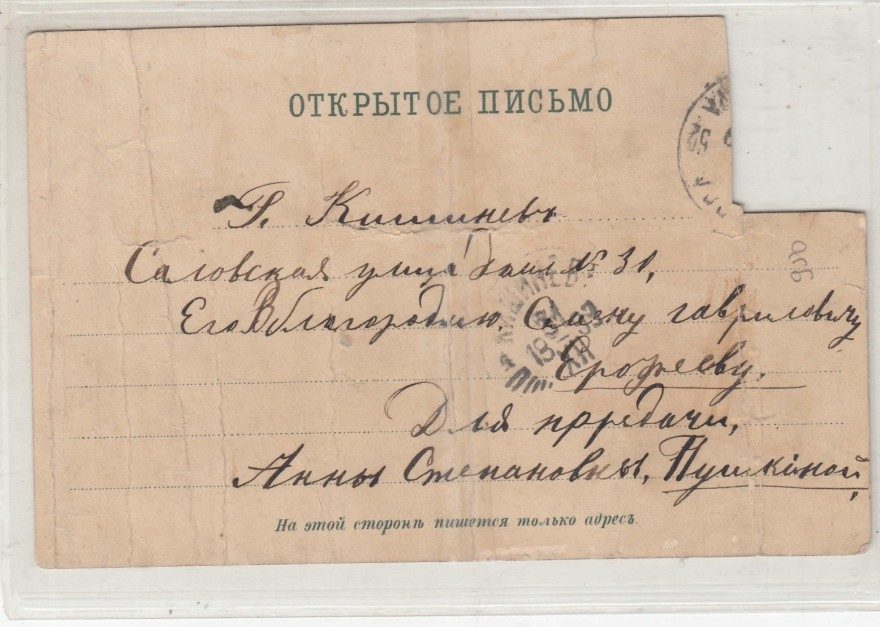 ОТКРЫТОЕ ПИСЬМО
Г. Кишиневъ
Садовская улица домъ № 31,
Его Вблагородию, Семену гавриловичу
Ерофееву.
Для передачи,
Анны Степановны, Пушкиной
На этой сторонѣ пишется только адресъ.
КИШИНЕВЪ
900